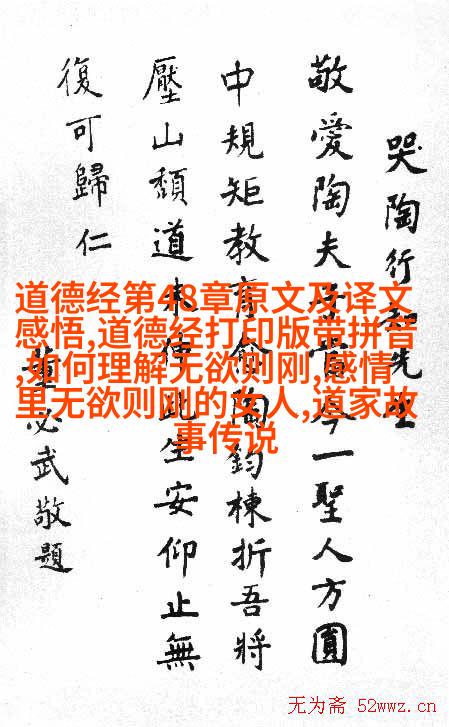 哭陶行知先生
敬愛陶夫子當今一聖人方圓
中規矩教育愈陶鈞棟折吾將
壓山頹道未伸此生安仰止無
復可歸仁
董必武敬題
道德经第48章原文及译文
感悟,道德经打印版带拼音
,如何理解无欲则刚,感情
里无欲则刚的女人,道家故
事传说
无为斋 52wwz.cn